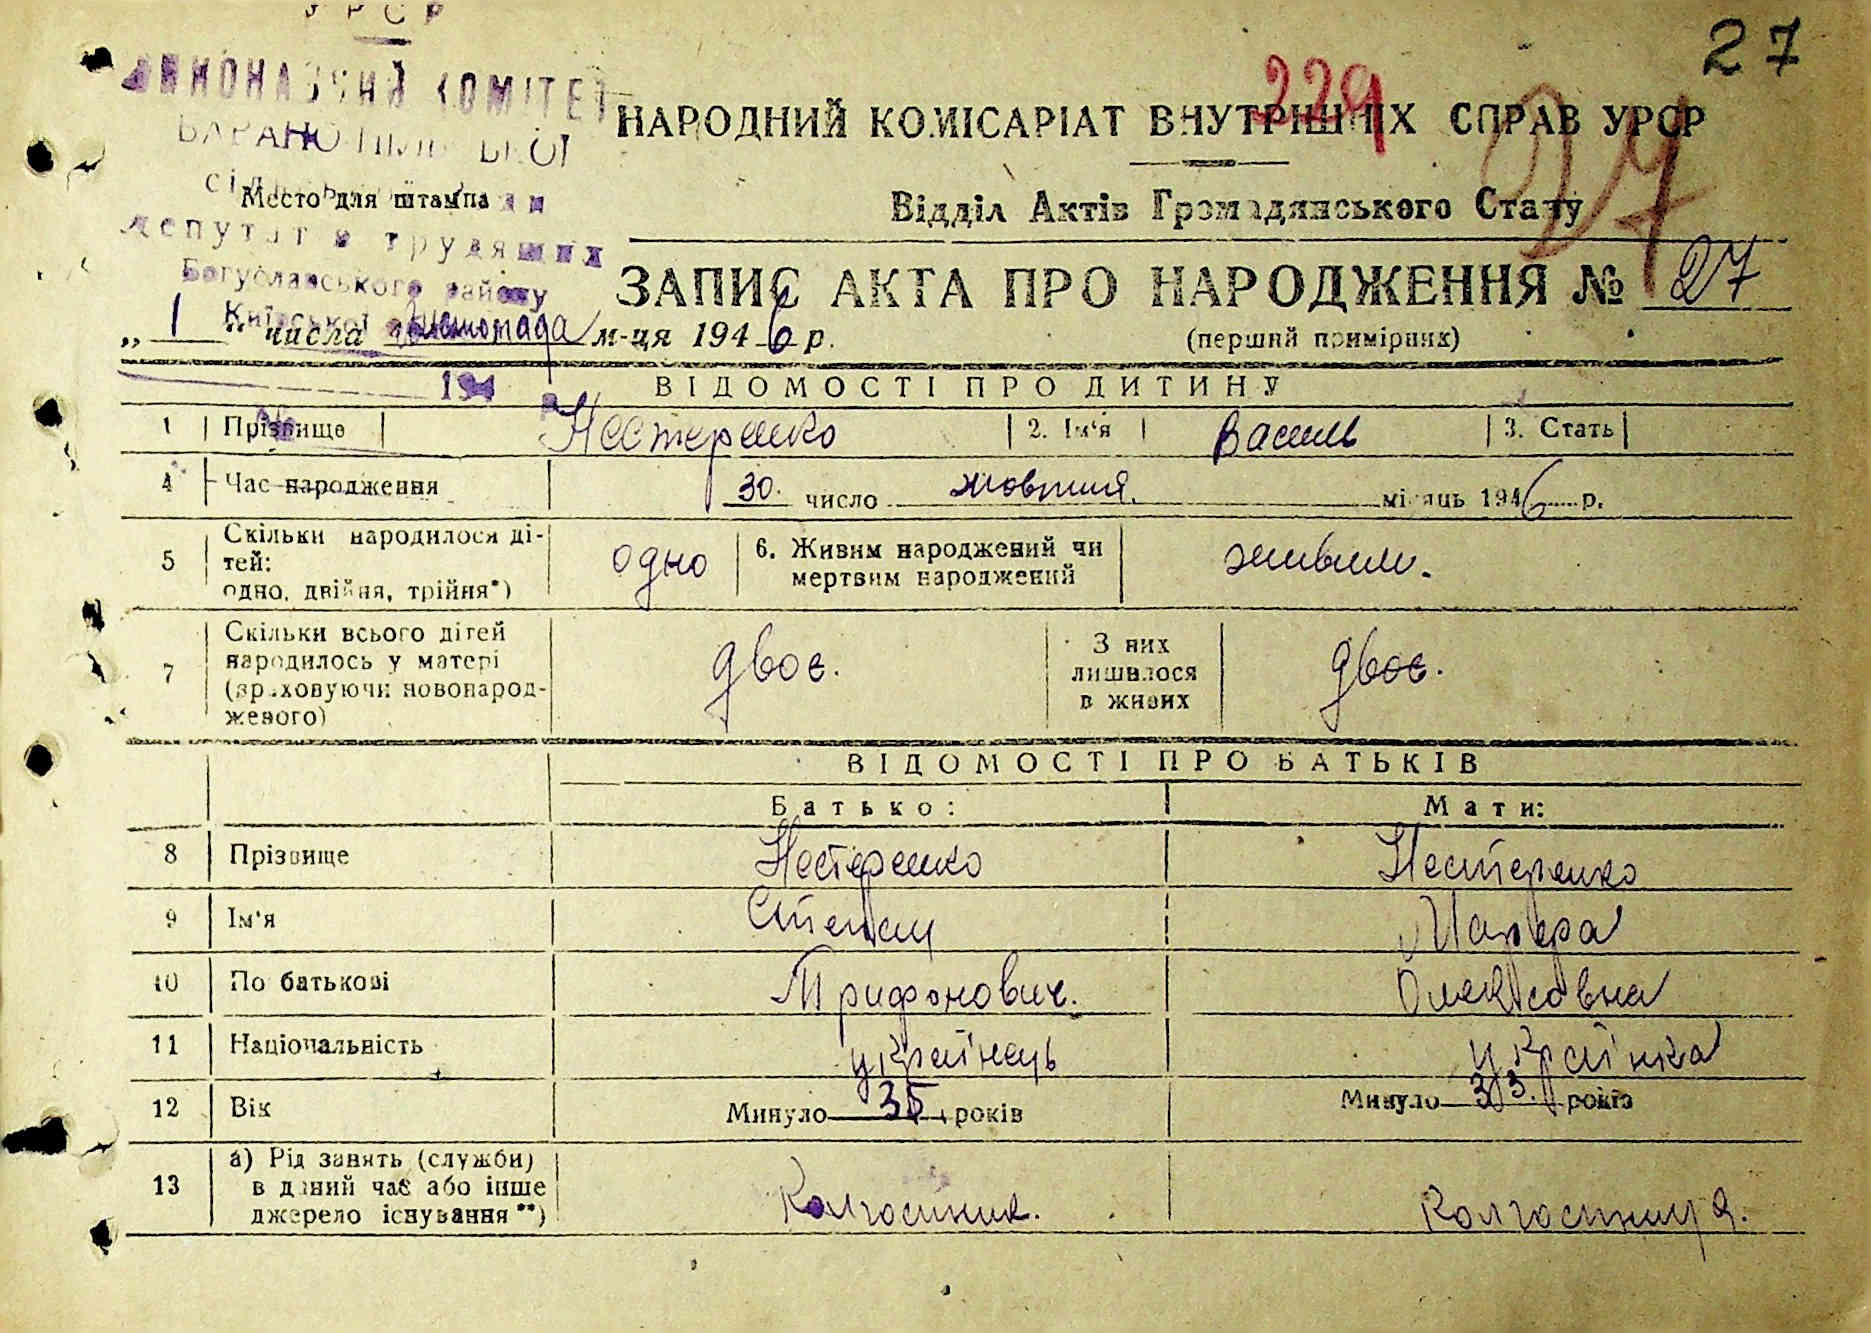 УРСР
27
ВИКОНАВЧИЙ КОМІТЕТ
229
НАРОДНИЙ КОМІСАРІАТ ВНУТРІШНІХ СПРАВ УРСР
27
Место для штампа
Відділ Актів Громадянського Стану
депутатів трудящих
Богуславського району
Київської
ЗАПИС АКТА ПРО НАРОДЖЕННЯ № 27
„ 1 “ числа листопада м-ця 1946 р.
(перший примірник)
194
ВІДОМОСТІ ПРО ДИТИНУ
1 Прізвище Нестеренко 2. Ім'я Василь 3. Стать
4 Час народження 30. число жовтня. місяць 1946 р.
5 Скільки народилося ді-
тей:
одно, двійня, трійня*) одно 6. Живим народжений чи
мертвим народжений живим.
7 Скільки всього дітей
народилось у матері
(враховуючи новонарод-
женого) двоє. З них
лишилося
в живих двоє.
ВІДОМОСТІ ПРО БАТЬКІВ
Батько: Мати:
8 Прізвище Нестеренко Нестеренко
9 Ім'я Степан
10 По батькові Трифонович. Олексовна
11 Національність українець українка
12 Вік Минуло 35 років Минуло 33. років
13 а) Рід занять (служби)
в даний час або інше
джерело існування**) Колгоспник. Колгоспниця.